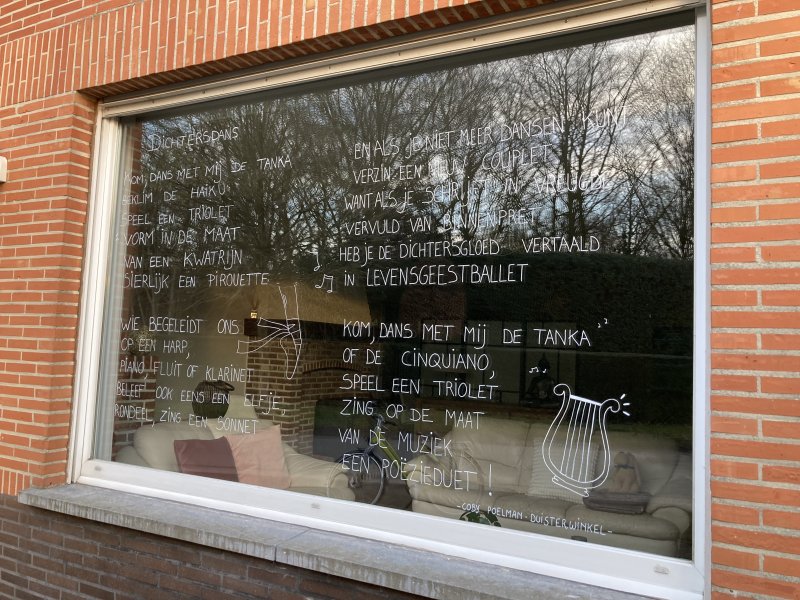 DICHTERSDANS
KOM, DANS MET MIJ DE TANKA
BEKLIM DE HAIKU
SPEEL EEN TRIOLET
VORM IN DE MAAT
VAN EEN KWATRIJN
SIERLIJK EEN PIROUETTE
WIE BEGELEIDT ONS
OP EEN HARP,
PIANO, FLUIT OF KLARINET
BELEEF OOK EENS EEN ELFJE,
RONDEEL, ZING EEN SONNET
EN ALS JE NIET MEER DANSEN KUNT
VERZIN EEN NIEUW COUPLET
WANT ALS JE SCHRIJFT IN VREUGDE
VERVULD VAN BINNENPRET
HEB JE DE DICHTERSGLOED VERTAALD
IN LEVENSGEESTBALLET
KOM, DANS MET MIJ DE TANKA
OF DE CINQUIANO,
SPEEL EEN TRIOLET
ZING OP DE MAAT
VAN DE MUZIEK
EEN POËZIEDUET!
- COBY POELMAN - DUISTERWINKEL -